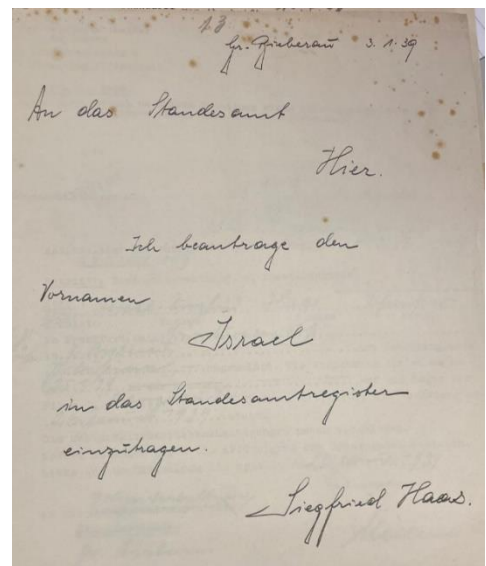 13
Gr. Bieberau 3.1.39
An das Standesamt
Hier.
Ich beantrage den
Vornamen
Israel
in das Standesamtregister
einzutragen.
Siegfried Haas.